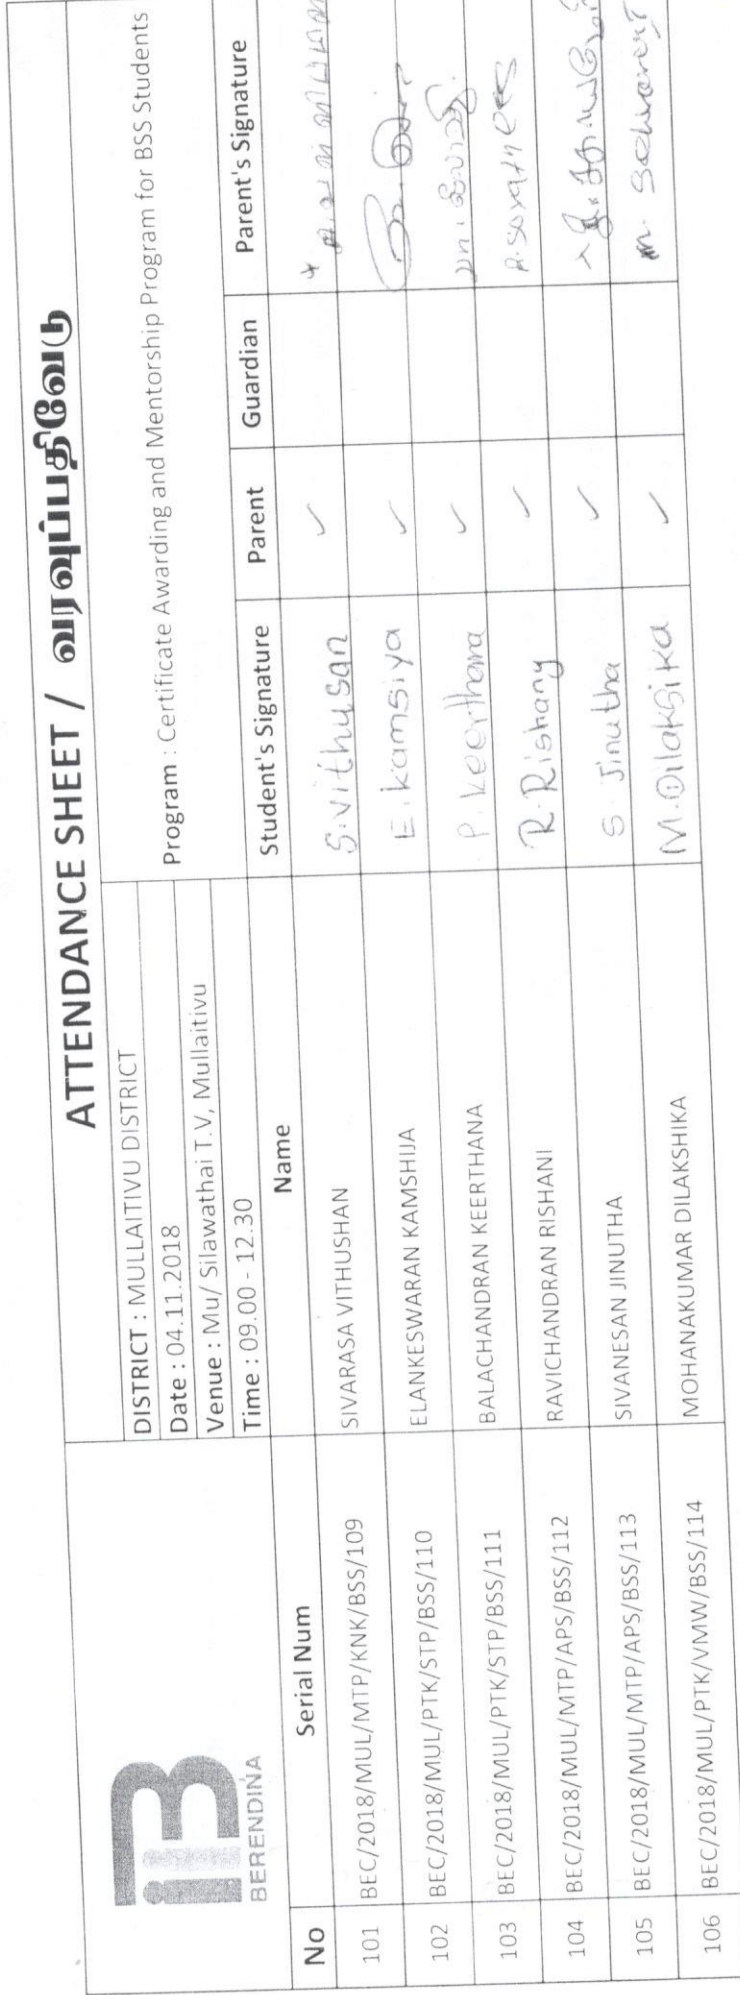 ATTENDANCE SHEET / வரவுப்பதிவேடு
BERENDINA
DISTRICT : MULLAITIVU DISTRICT
Date : 04.11.2018
Venue : Mu/ Silawathai T.V, Mullaitivu
Time : 09.00 - 12.30
Program : Certificate Awarding and Mentorship Program for BSS Students
No Serial Num Name Student's Signature Parent Guardian Parent's Signature
101 BEC/2018/MUL/MTP/KNK/BSS/109 SIVARASA VITHUSHAN S.Vithusan ✓
102 BEC/2018/MUL/PTK/STP/BSS/110 ELANKESWARAN KAMSHIJA E.kamsiya ✓
103 BEC/2018/MUL/PTK/STP/BSS/111 BALACHANDRAN KEERTHANA P.keerthana ✓
104 BEC/2018/MUL/MTP/APS/BSS/112 RAVICHANDRAN RISHANI R.Rishany ✓
105 BEC/2018/MUL/MTP/APS/BSS/113 SIVANESAN JINUTHA S.Jinutha ✓
106 BEC/2018/MUL/PTK/VMW/BSS/114 MOHANAKUMAR DILAKSHIKA M.Dilaksika ✓